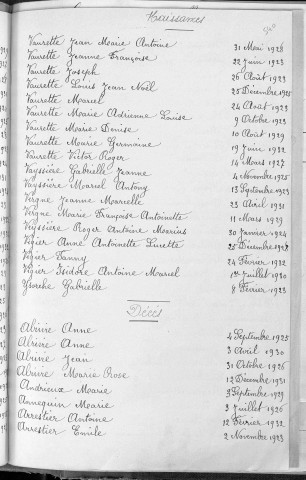 Naissances
Vaurette Jean Marie Antoine 31 Mai 1928
Vaurette Jeanne Françoise 22 Juin 1923
Vaurette Joseph 26 Août 1929
Vaurette Louis Jean Noël 25 Décembre 1925
Vaurette Marcel 24 Août
Vaurette Marie Adrienne Louise 9 Octobre 1923
Vaurette Marie Denise 10 Août 1929
Vaurette Marie Germanne 19 Juin 1932
Vaurette Victor Roger 14 Mars 1927
Vayssière Gabrielle Jeanne 4 Novembre 1925
Vayssière Marcel Antony 13 Septembre 1923
Vergne Jeanne Marcelle 23 Avril 1931
Vergne Marie Françoise Antoinette 11 Mars 1929
Veyssière Roger Antoine Marius 30 Janvier 1924
Vigier Anne Antoinette Lucette 25 Décembre
Vigier Fanny 24 Février 1932
Vigier Isidore Antoine Marcel 1er Juillet 1930
Ysorche Gabrielle 8 Février 1923
Décès
Abrivie Anne 4 Septembre 1925
Abrivie Anne 3 Avril 1930
Abrivie Jean 31 Octobre 1926
Abrivie Marie Rose 12 Décembre 1931
Andrieux Marie 3 Septembre 1929
Annequin Marie 3 Juillet 1926
Arrestier Antoine 12 Février 1932
Arrestier Emile 2 Novembre 1923